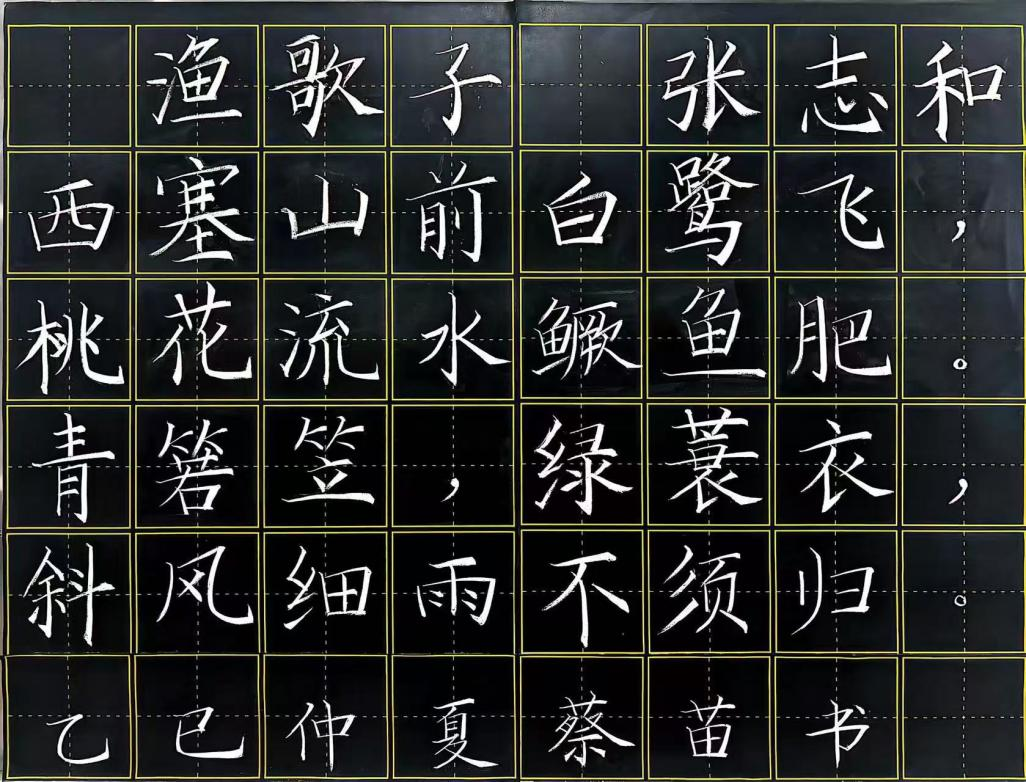 渔歌子 张志和
西塞山前白鹭飞，
桃花流水鳜鱼肥。
青箬笠，绿蓑衣，
斜风细雨不须归。
乙巳仲夏蔡苗书